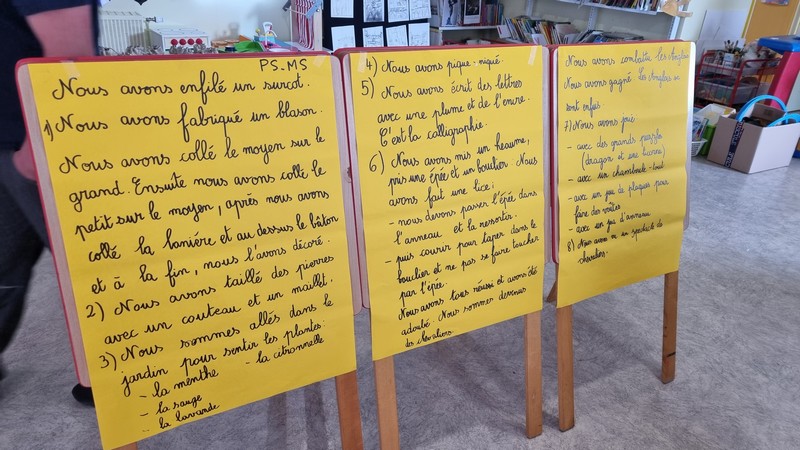 PS-MS
Nous avons enfilé un surcot.
1) Nous avons fabriqué un blason.
Nous avons collé le moyen sur le
grand. Ensuite nous avons collé le
petit sur le moyen, après nous avons
collé la lanière et au dessus le bâton
et à la fin, nous l'avons décoré.
2) Nous avons taillé des pierres
avec un couteau et un maillet.
3) Nous sommes allés dans le
jardin pour sentir les plantes:
- la menthe - la citronnelle
- la sauge
- la lavande
4) Nous avons pique-niqué.
5) Nous avons écrit des lettres
avec une plume et de l'encre.
C'est la calligraphie.
6) Nous avons mis un heaume,
pris une épée et un bouclier. Nous
avons fait une lice:
- nous devons passer l'épée dans
l'anneau et la ressortir.
- puis courir pour taper dans le
bouclier et ne pas se faire toucher
par l'épée.
Nous avons tous réussi et avons été
adoubé. Nous sommes devenus
des chevaliers.
Nous avons combattu les Anglais
Nous avons gagné les Anglais se
sont enfuis.
7) Nous avons joué
- avec des grands puzzles
(dragon et une licorne)
- avec un chamboule-tout
- avec un jeu de plaques pour
faire des voûtes
- avec un jeu d'anneaux
8) Nous avons vu un spectacle de
chevaliers.